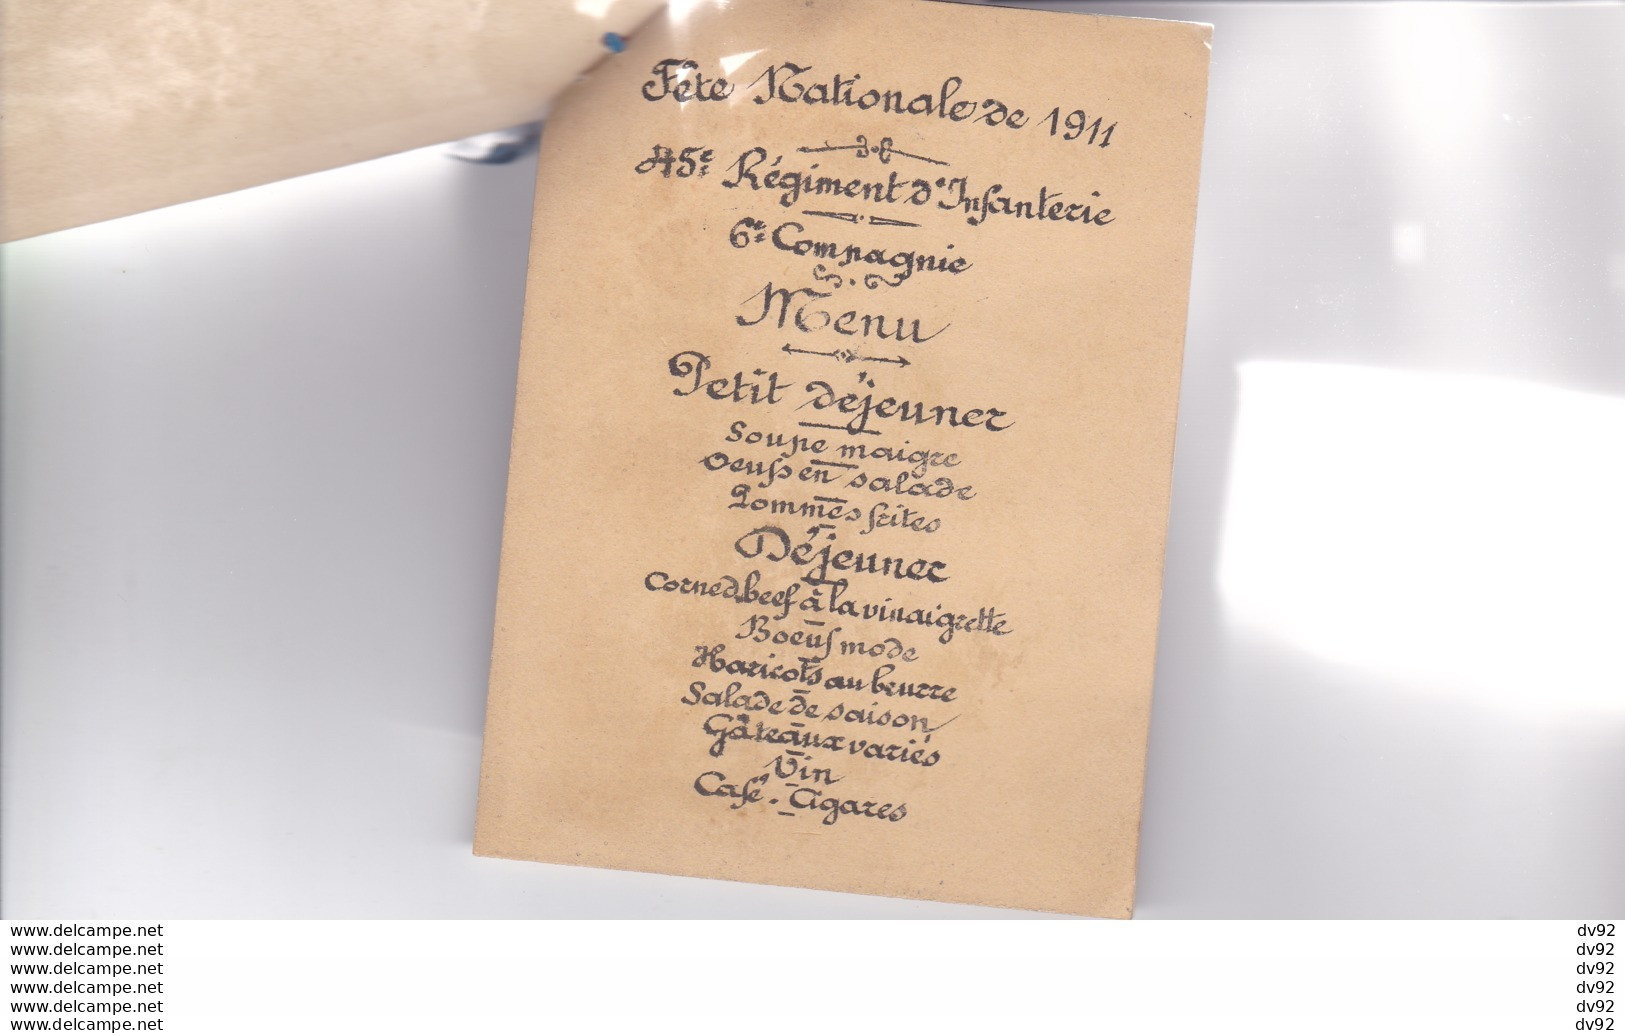 Fête Nationale de 1911
45e Régiment d'Infanterie
6e Compagnie
Menu
Petit déjeuner
Soupe maigre
Oeufs en salade
Pommes frites
Déjeuner
Corned beef à la vinaigrette
Boeuf mode
Haricots au beurre
Salade de saison
Gâteaux variés
Vin
Café. Cigares
www.delcampe.net dv92
www.delcampe.net dv92
www.delcampe.net dv92
www.delcampe.net dv92
www.delcampe.net dv92
www.delcampe.net dv92